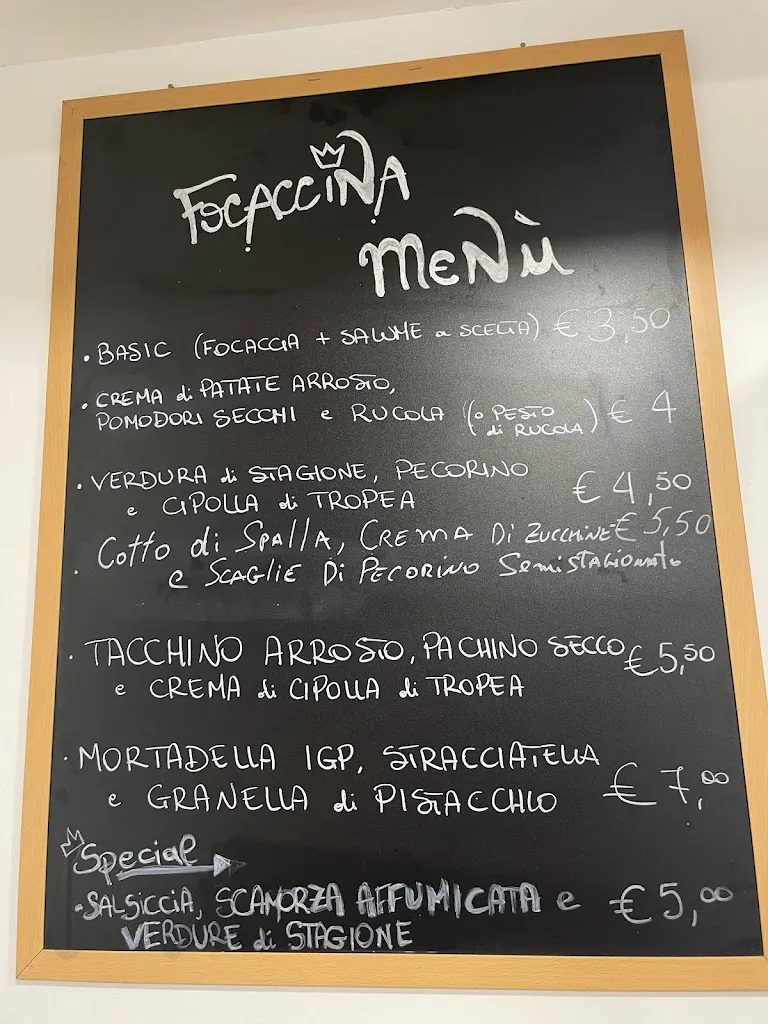 FOCACCINA
MENÙ
• BASIC (FOCACCIA + SALUME a SCELTA) € 3,50
• CREMA di PATATE ARROSTO,
POMODORI SECCHI e RUCOLA (o PESTO di RUCOLA) € 4
• VERDURA di STAGIONE, PECORINO
e CIPOLLA di TROPEA € 4,50
• Cotto di Spalla, CREMA Di ZUCCHINE € 5,50
e SCAGLIE Di PECORINO Semistagionato
• TACCHINO ARROSTO, PACHINO SECCO € 5,50
e CREMA di CIPOLLA di TROPEA
• MORTADELLA IGP, STRACCIATELLA
e GRANELLA di PISTACCHIO € 7,00
Special
• SALSICCIA, SCAMORZA AFFUMICATA e € 5,00
VERDURE di STAGIONE